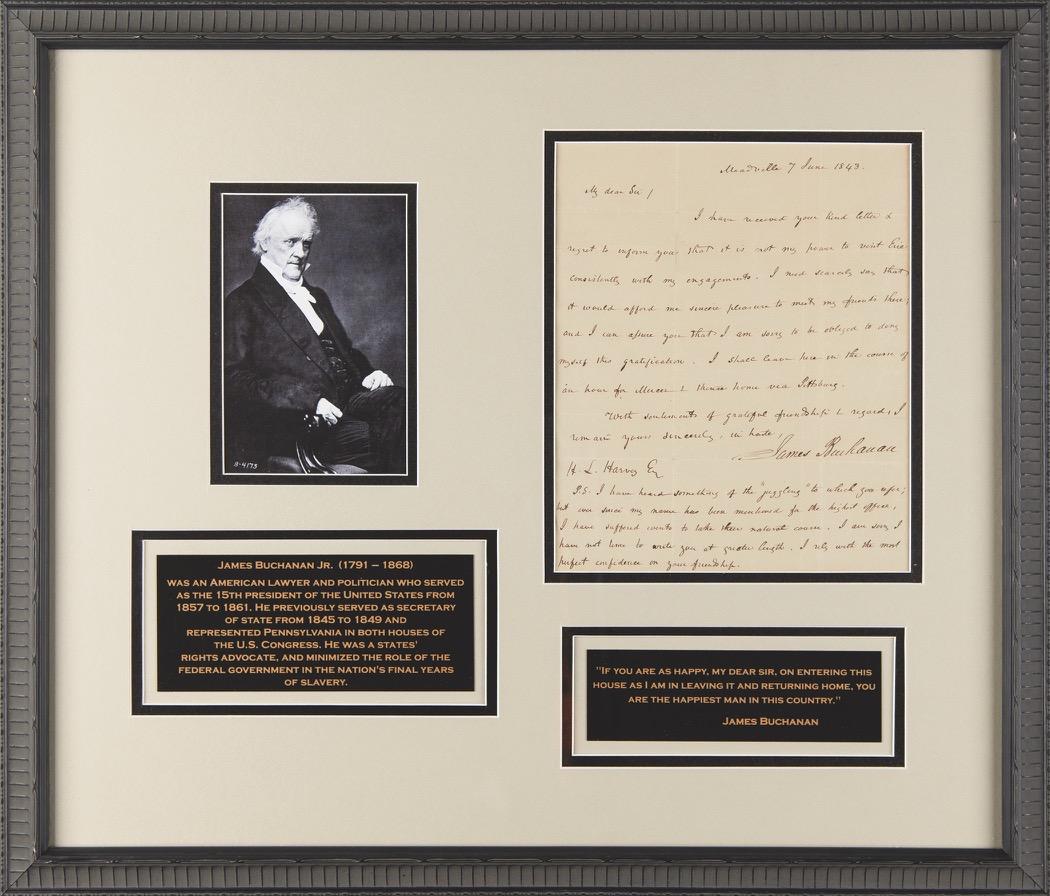 Meadville 7 June 1843.
My dear Sir/
I have received your kind letter &
regret to inform you that it is not my power to visit Erie
consistently with my engagements. I need scarcely say that
it would afford me sincere pleasure to meet my friends there;
and I can assure you that I am sorry to be obliged to deny
myself this gratification. I shall leave here in the course of
an hour for Mercer & thence home via Pittsburg.
With sentiments of grateful friendship & regard, I
remain yours sincerely, in haste,
James Buchanan
H. L. Harvey Eq
P.S. I have heard something of the "juggling" to which you refer;
but ever since my name has been mentioned for the highest office,
I have suffered events to take their natural course. I am sorry I
have not time to write you at greater length. I rely with the most
perfect confidence on your friendship.
B-4175
JAMES BUCHANAN JR. (1791 – 1868)
WAS AN AMERICAN LAWYER AND POLITICIAN WHO SERVED
AS THE 15TH PRESIDENT OF THE UNITED STATES FROM
1857 TO 1861. HE PREVIOUSLY SERVED AS SECRETARY
OF STATE FROM 1845 TO 1849 AND
REPRESENTED PENNSYLVANIA IN BOTH HOUSES OF
THE U.S. CONGRESS. HE WAS A STATES'
RIGHTS ADVOCATE, AND MINIMIZED THE ROLE OF THE
FEDERAL GOVERNMENT IN THE NATION'S FINAL YEARS
OF SLAVERY.
"IF YOU ARE AS HAPPY, MY DEAR SIR, ON ENTERING THIS
HOUSE AS I AM IN LEAVING IT AND RETURNING HOME, YOU
ARE THE HAPPIEST MAN IN THIS COUNTRY."
JAMES BUCHANAN